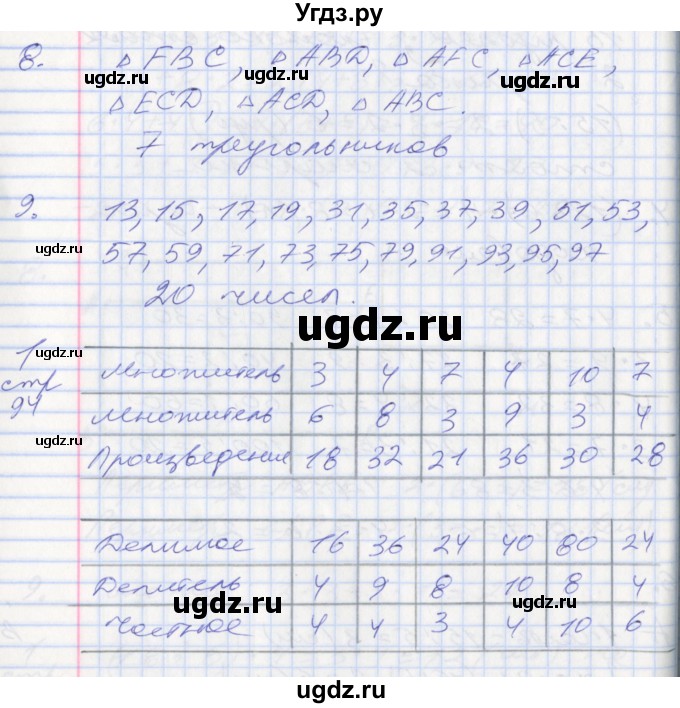 Угдз.ру
8. △ FBC, △ ABD, △ AFC, △ ACE,
△ ECD, △ ACD, △ ABC.
7 треугольников
9. 13, 15, 17, 19, 31, 35, 37, 39, 51, 53,
57, 59, 71, 73, 75, 79, 91, 93, 95, 97
20 чисел.
1 стр 94
Множитель 3 4 7 4 10 7
Множитель 6 8 3 9 3 4
Произведение 18 32 21 36 30 28
Делимое 16 36 24 40 80 24
Делитель 4 9 8 10 8 4
Частное 4 4 3 4 10 6
ugdz.ru
ugdz.ru
ugdz.ru
ugdz.ru
ugdz.ru
ugdz.ru
ugdz.ru
ugdz.ru
ugdz.ru
ugdz.ru
ugdz.ru
ugdz.ru
ugdz.ru